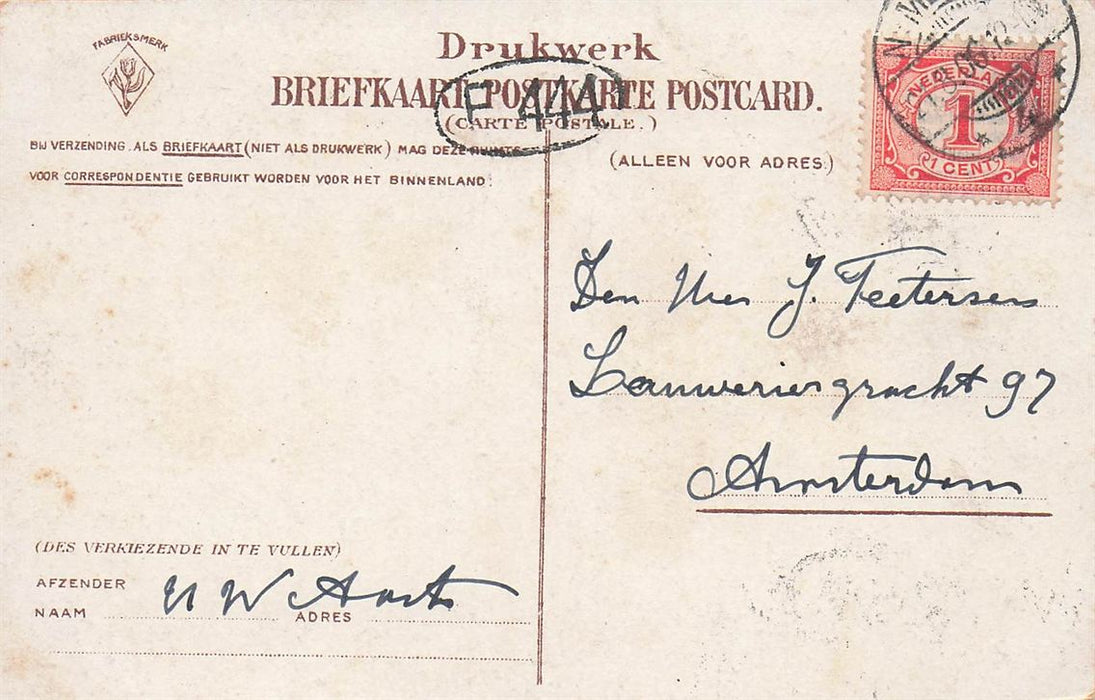 FABRIEKSMERK
Drukwerk
BRIEFKAART POSTKARTE POSTCARD.
(CARTE POSTALE.)
F 444
BIJ VERZENDING ALS BRIEFKAART (NIET ALS DRUKWERK) MAG DEZE RUIMTE
VOOR CORRESPONDENTIE GEBRUIKT WORDEN VOOR HET BINNENLAND.
(ALLEEN VOOR ADRES.)
NEDERLAND
1
1 CENT
Den Heer J. Teetersen
Lauweriergracht 97
Amsterdam
(DES VERKIEZENDE IN TE VULLEN)
AFZENDER
NAAM W Aarts ADRES